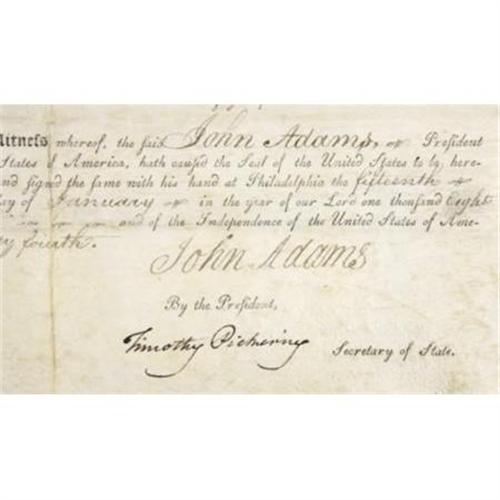 Witness whereof, the said John Adams, President
States of America, hath caused the Seal of the United States to be here-
and signed the same with his hand at Philadelphia the fifteenth
day of January in the year of our Lord one thousand Eight
and of the Independence of the United States of Ame-
ty fourth.
John Adams
By the President,
Timothy Pickering
Secretary of State.